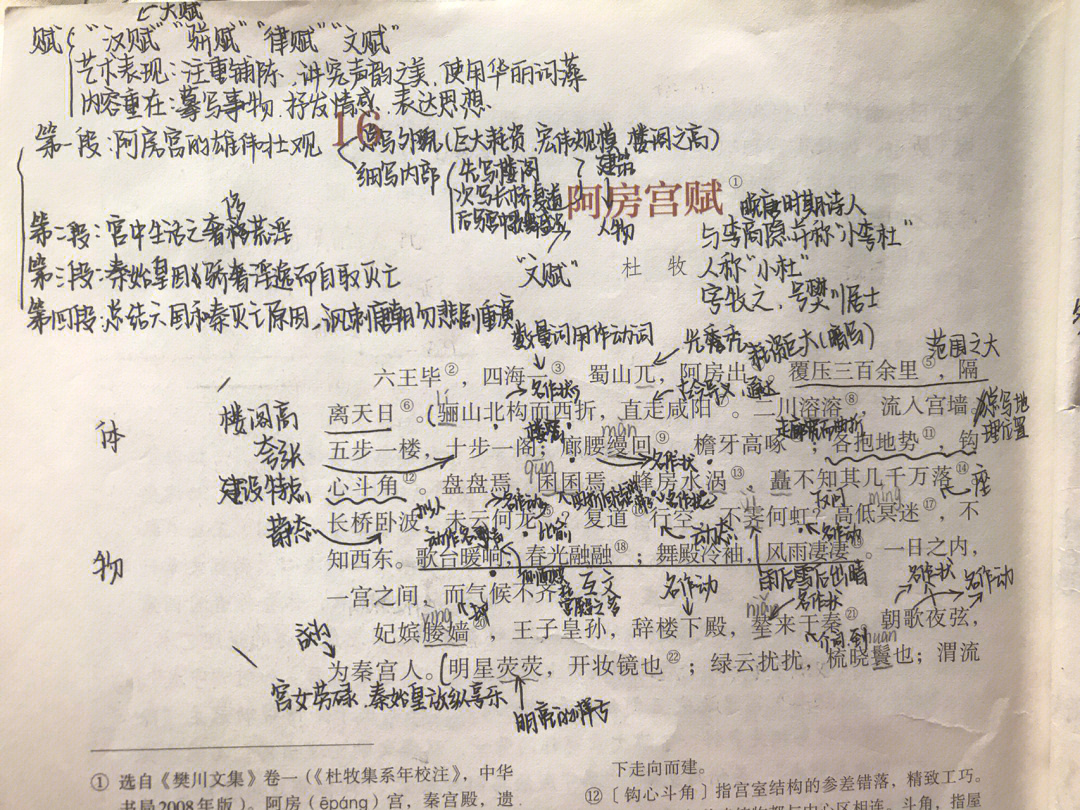 大赋
赋 "汉赋" "骈赋" "律赋" "文赋"
艺术表现:注重铺陈,讲究声韵之美,使用华丽词藻
内容重在:摹写事物,抒发情感,表达思想
16
第一段:阿房宫的雄伟壮观
总写外观(巨大耗资,宏伟规模,楼阁之高)
细写内部
先写楼阁
次写长桥复道
后写宫中歌舞盛况
建筑
人物
阿房宫赋①
第二段:宫中生活之奢侈荒淫
第三段:秦始皇因骄奢淫逸而自取灭亡
第四段:总结六国和秦灭亡原因,讽刺唐朝勿悲剧重演
"文赋"
杜 牧
晚唐时期诗人
与李商隐并称"小李杜"
人称"小杜"
字牧之,号樊川居士
数量词用作动词
光秃秃
耗资巨大(暗写)
范围之大
六王毕②,四海一③。蜀山兀,阿房出。覆压三百余里⑤,隔
名作状
lí
离天日⑥。(骊山北构而西折,直走咸阳⑦。二川溶溶⑧,流入宫墙。
楼阁高
màn
五步一楼,十步一阁;廊腰缦回⑨,檐牙高啄;各抱地势⑪,钩
夸张
名作状
qūn
心斗角⑫。盘盘焉,囷囷焉,蜂房水涡⑬,矗不知其几千万落⑭。
建设特点
座
长桥卧波,未云何龙⑮?复道⑯行空,不霁何虹?高低冥迷⑰,不
静态
动态
名作动
知西东。歌台暖响,春光融融⑱;舞殿冷袖,风雨凄凄⑲。一日之内,
体
物
互文
名作动
雨后雪后出晴
名作状
名作动
一宫之间,而气候不齐。
妃嫔媵嫱⑳,王子皇孙,辞楼下殿,辇来于秦㉑。朝歌夜弦,
yìng
niǎn
名作状
huán
为秦宫人。(明星荧荧,开妆镜也㉒;绿云扰扰,梳晓鬟也;渭流
宫女劳碌,秦始皇放纵享乐
明亮的样子
① 选自《樊川文集》卷一(《杜牧集系年校注》,中华
书局2008年版)。阿房(ēpáng)宫,秦宫殿,遗
下走向而建。
⑫〔钩心斗角〕指宫室结构的参差错落,精致工巧。